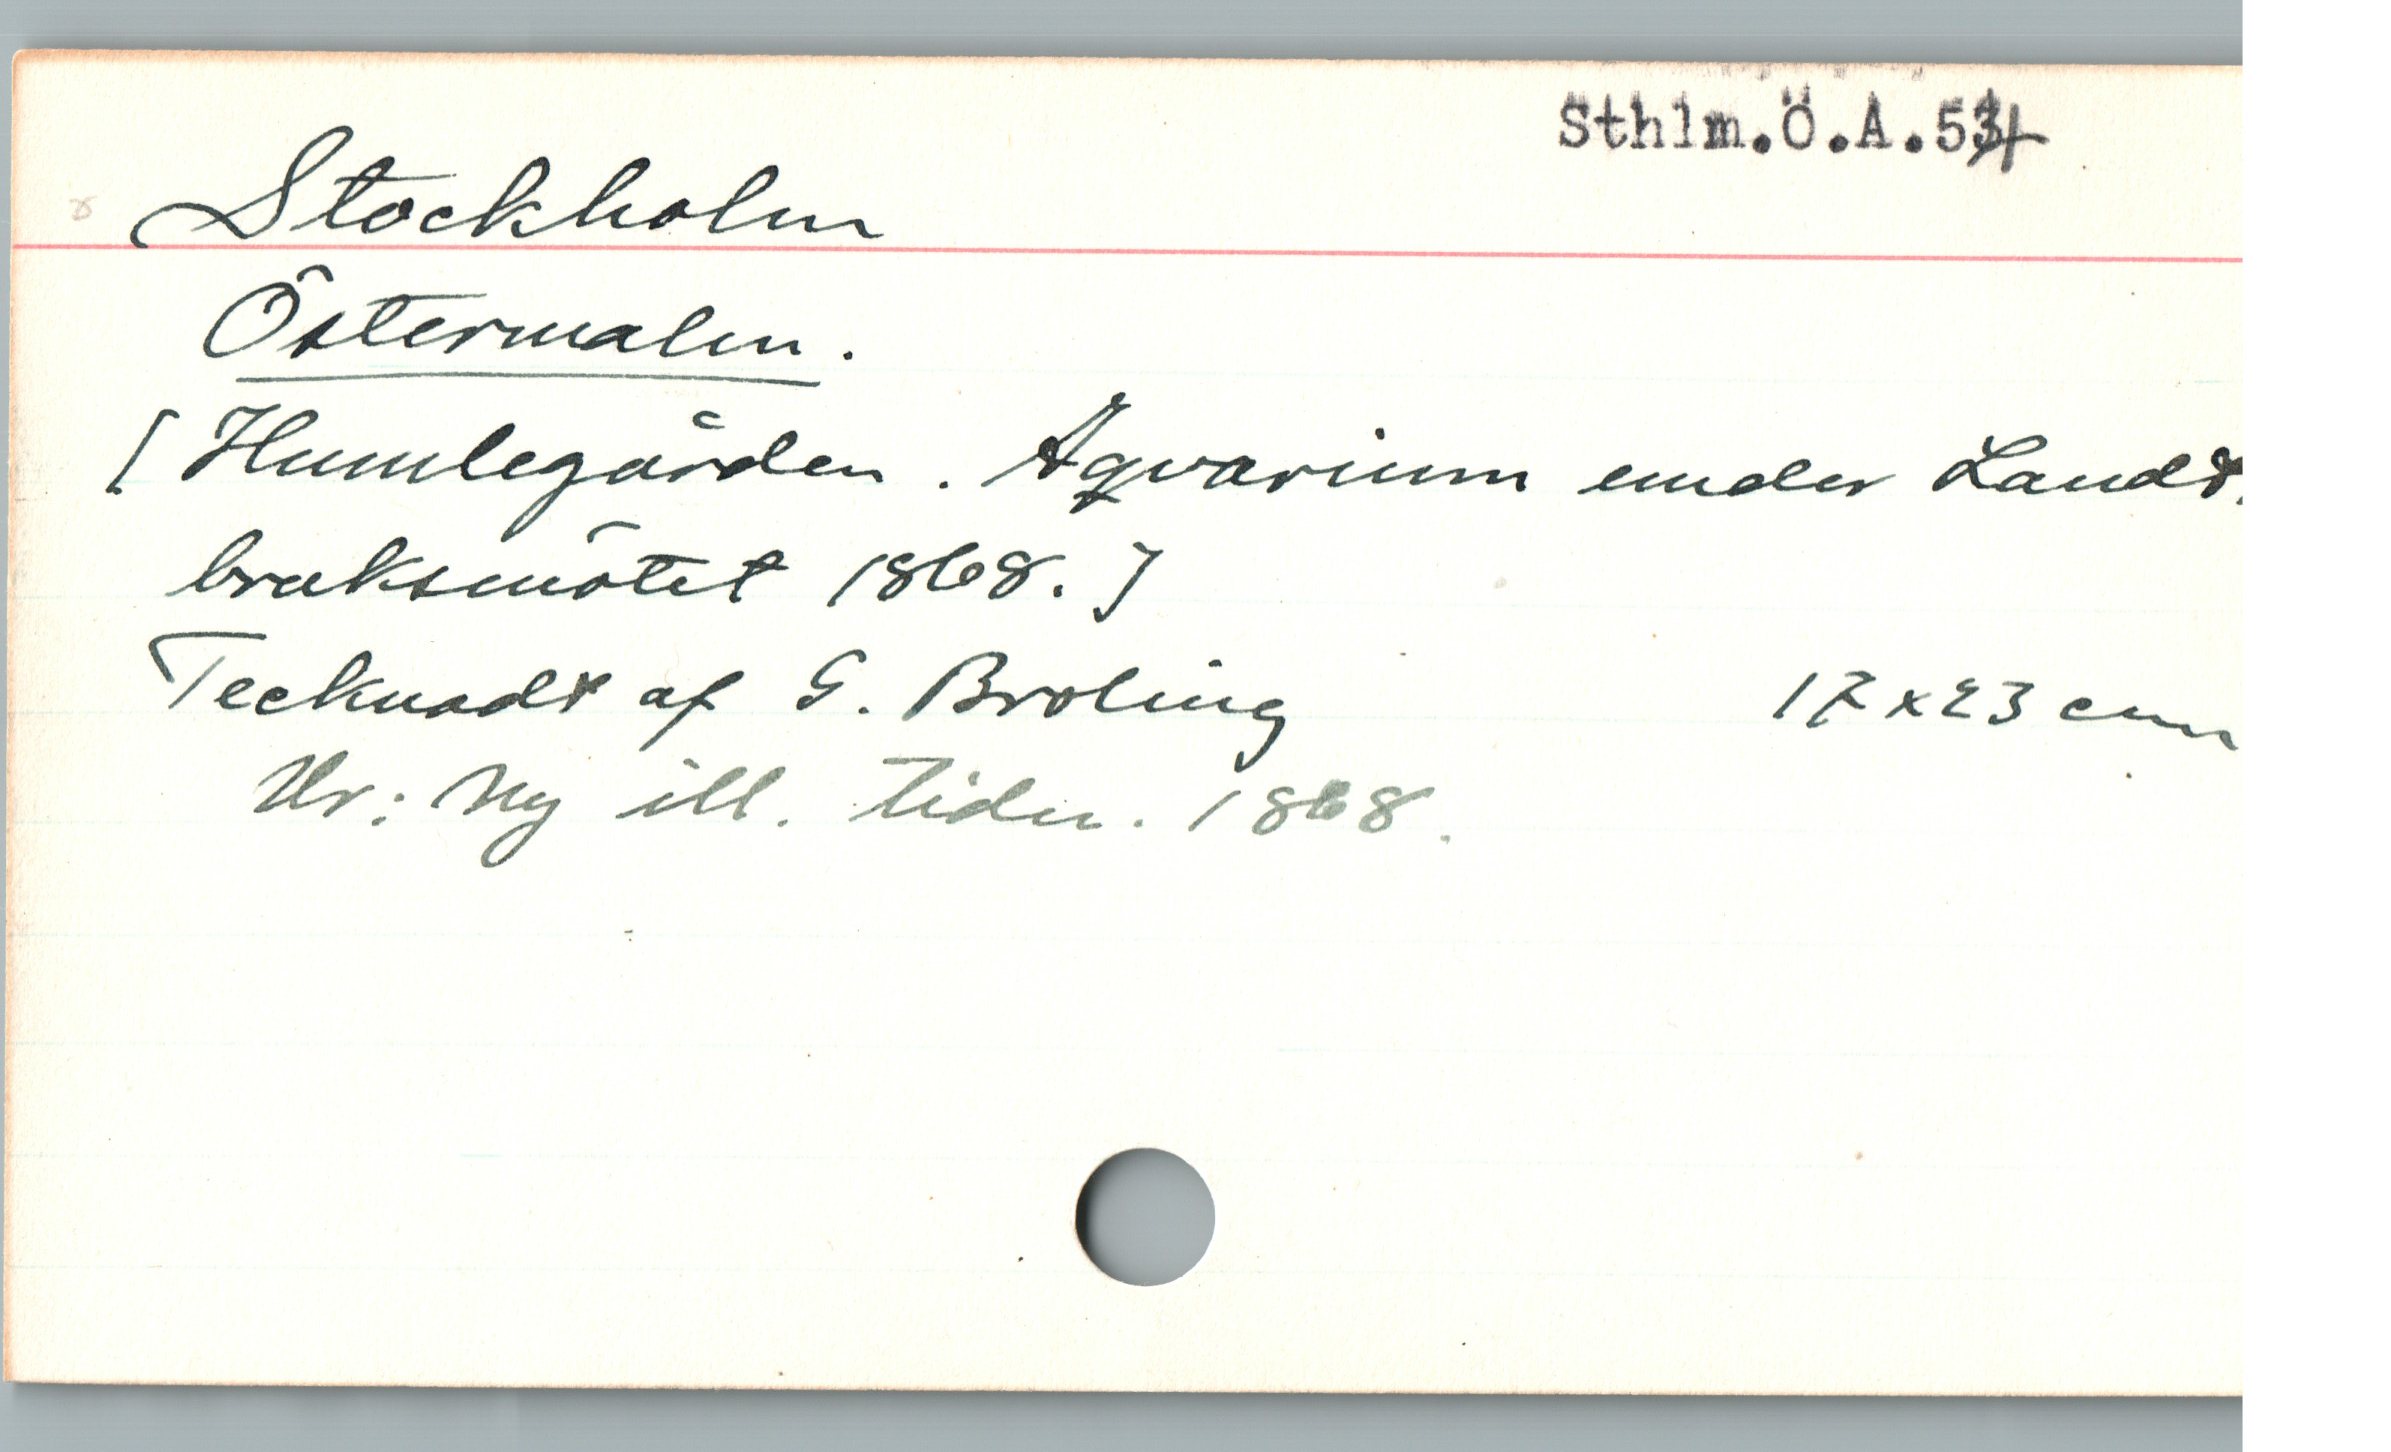 Sthlm.Ö.A.54
Stockholm
Östermalm.
[Humlegården. Aqvarium under Landt-
bruksmötet 1868.]
Tecknadt af G. Broling 17x23 cm
Ur: Ny ill. tidn. 1868.